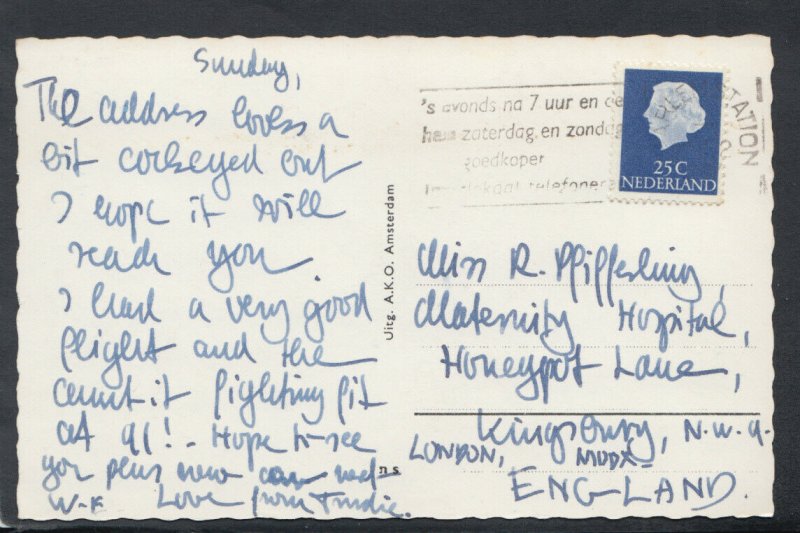 Sunday,
The address looks a
bit cockeyed but
I hope it will
reach you
I had a very good
flight and the
aunt is fighting fit
at 91! - Hope to see
you plus new car next
W-E Love from Trudie.
Uitg. A.K.O. Amsterdam
's avonds na 7 uur en de
hele zaterdag en zondag
goedkoper
telefoneren
STATION
25 C
NEDERLAND
Miss R. Pfifferling,
Maternity Hospital,
Honeypot Lane,
Kingsbury, N.W.9.
LONDON, MIDDX
ENGLAND.